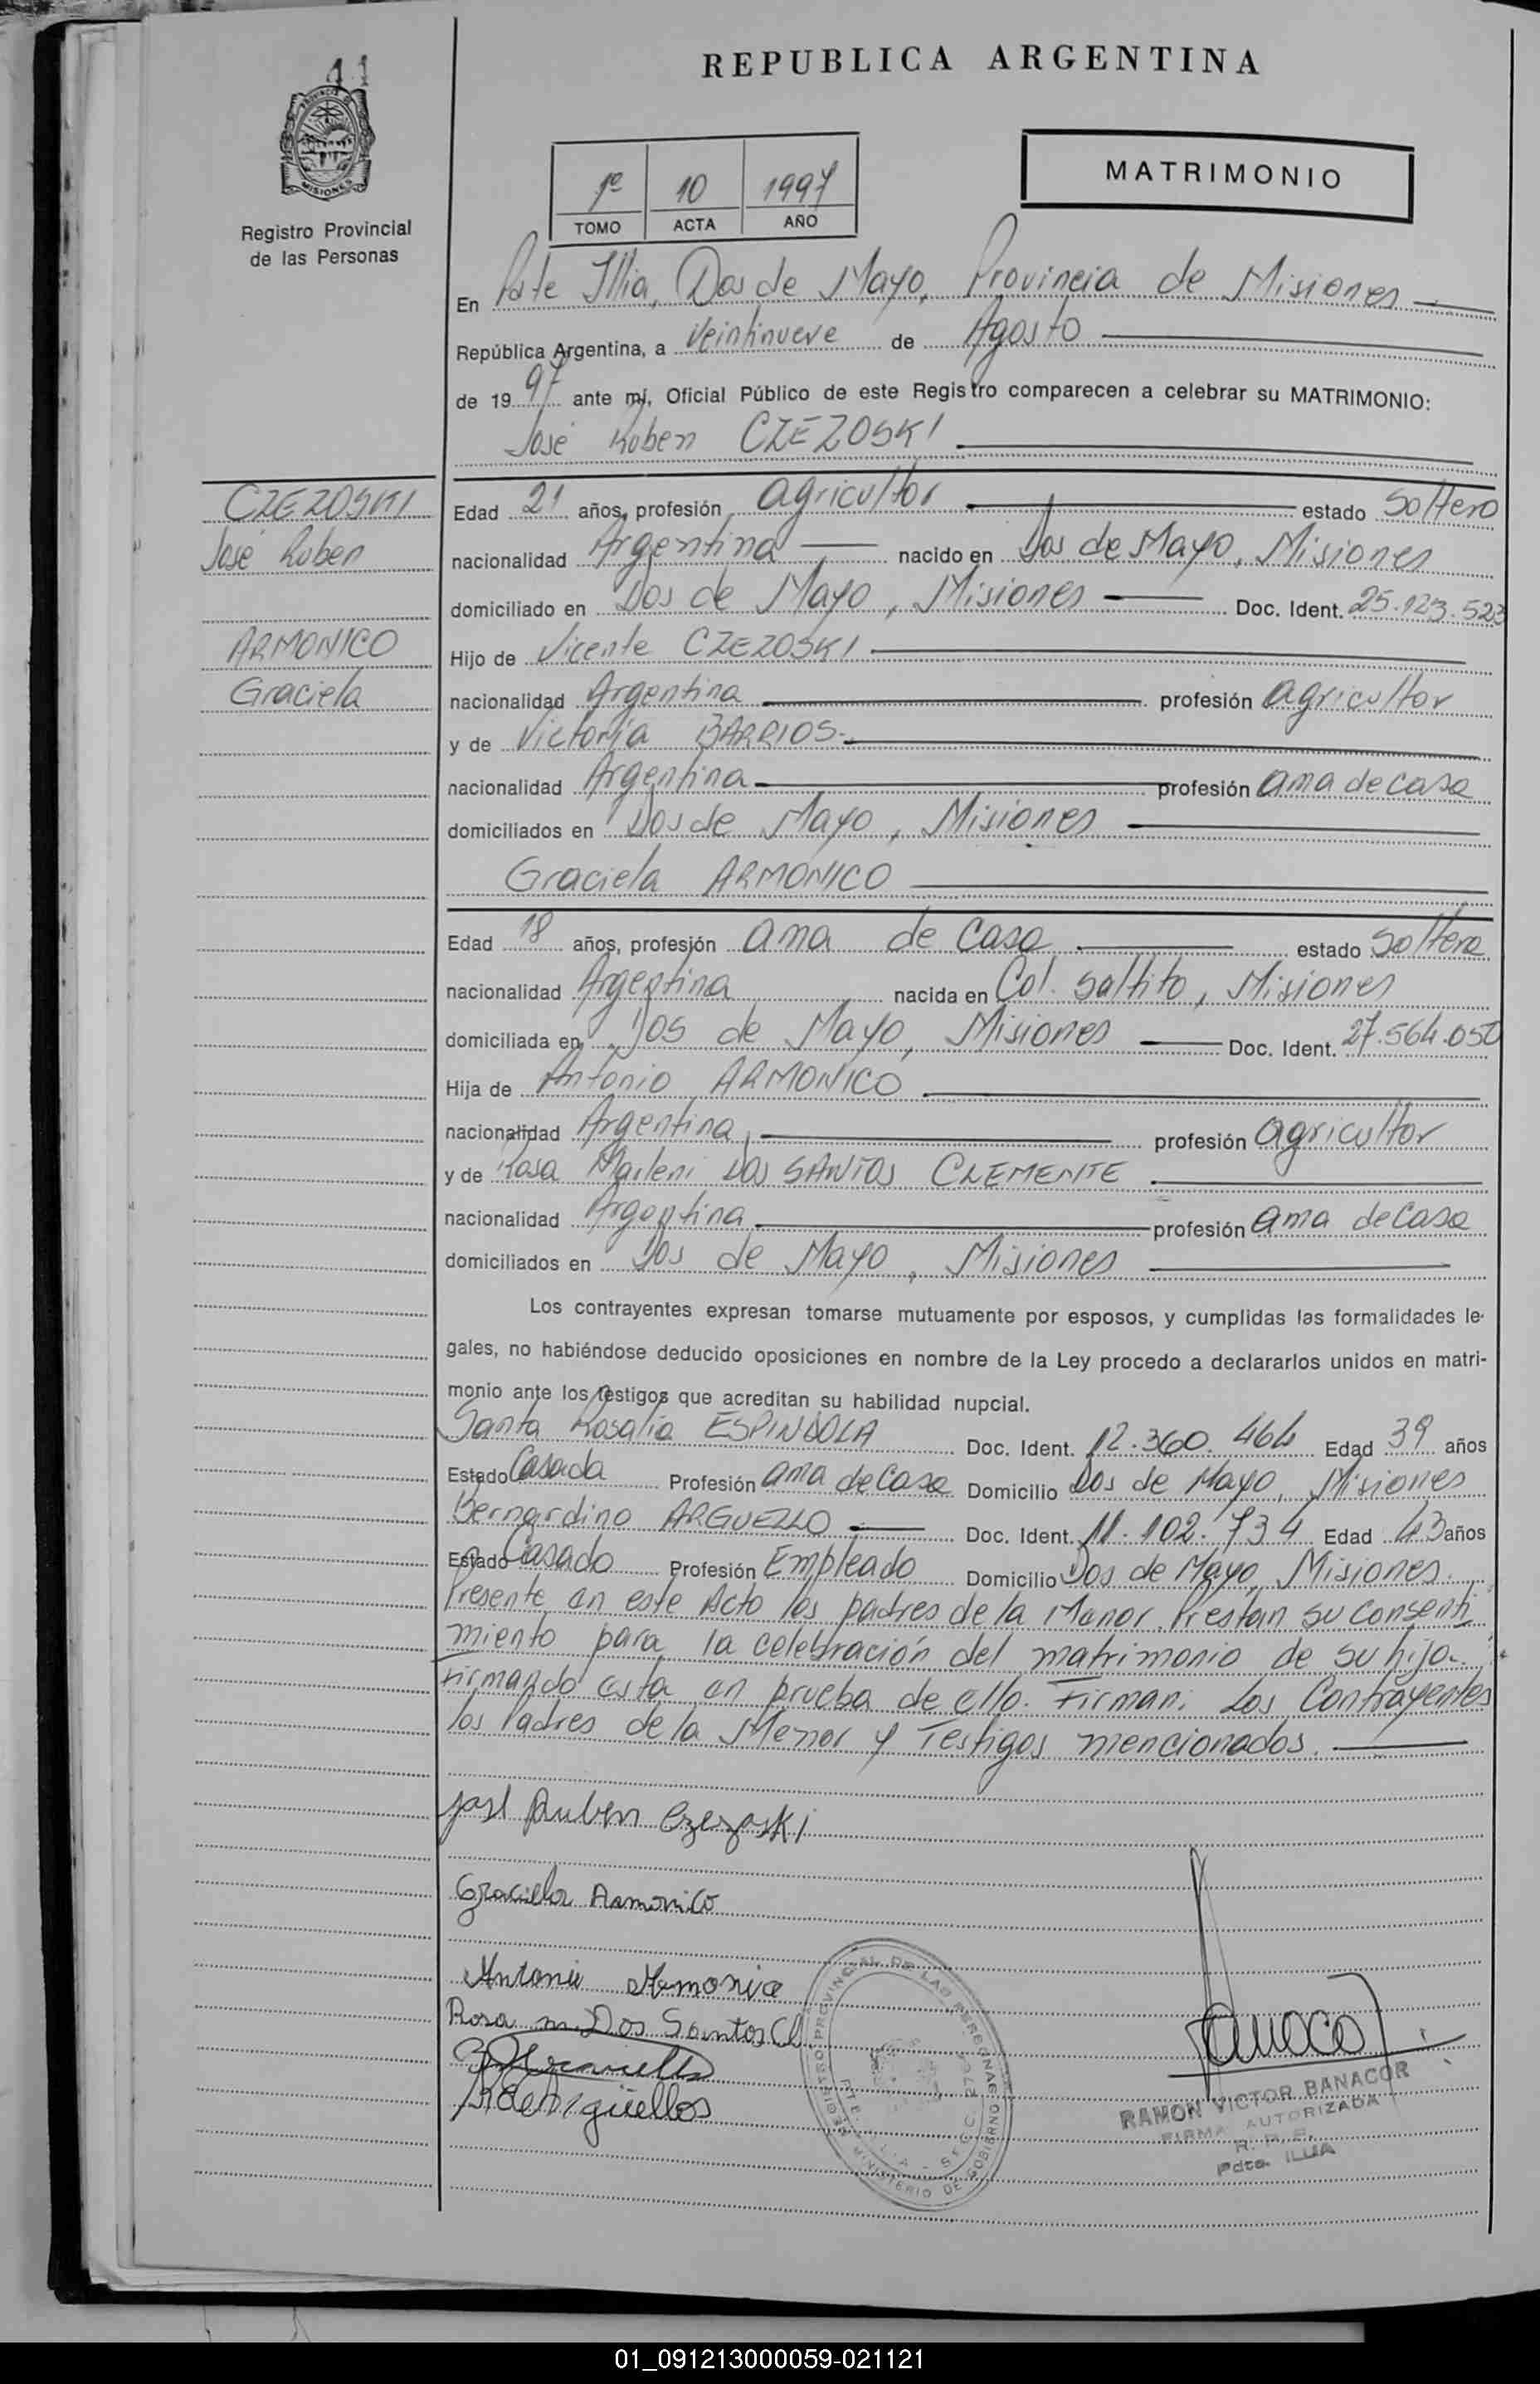 11
REPUBLICA ARGENTINA
PROVINCIA DE MISIONES
Registro Provincial
de las Personas
1º 10 1997
TOMO ACTA AÑO
MATRIMONIO
En Pdte Illia, Dos de Mayo, Provincia de Misiones
República Argentina, a Veintinueve de Agosto
de 1997 ante mí, Oficial Público de este Registro comparecen a celebrar su MATRIMONIO:
José Ruben CZEZOSKI
CZEZOSKI
José Ruben
ARMONICO
Graciela
Edad 21 años, profesión agricultor estado Soltero
nacionalidad Argentina nacido en Dos de Mayo, Misiones
domiciliado en Dos de Mayo, Misiones Doc. Ident. 25.123.523
Hijo de Vicente CZEZOSKI
nacionalidad Argentina profesión agricultor
y de Victoria BARRIOS.
nacionalidad Argentina profesión ama de casa
domiciliados en Dos de Mayo, Misiones
Graciela ARMONICO
Edad 18 años, profesión ama de casa estado Soltera
nacionalidad Argentina nacida en Col. Saltito, Misiones
domiciliada en Dos de Mayo, Misiones Doc. Ident. 27.564.050
Hija de Antonio ARMONICO
nacionalidad Argentina profesión agricultor
y de Rosa Marleni DOS SANTOS CLEMENTE
nacionalidad Argentina profesión ama de casa
domiciliados en Dos de Mayo, Misiones
Los contrayentes expresan tomarse mutuamente por esposos, y cumplidas las formalidades le-
gales, no habiéndose deducido oposiciones en nombre de la Ley procedo a declararlos unidos en matri-
monio ante los testigos que acreditan su habilidad nupcial.
Santa Rosalia ESPINDOLA Doc. Ident. 12.360.464 Edad 39 años
Estado Casada Profesión ama de casa Domicilio Dos de Mayo, Misiones
Bernardino ARGUELLO Doc. Ident. 11.102.734 Edad 43 años
Estado Casado Profesión Empleado Domicilio Dos de Mayo, Misiones.
Presente en este Acto los padres de la Menor. Prestan su consenti
miento para la celebración del matrimonio de su hija.
Firmando esta en prueba de ello. Firman: Los Contrayentes
los Padres de la Menor y Testigos mencionados.
José Ruben Czezoski
Graciela Armonico
Antonio Armonico
Rosa m. Dos Santos Cl.
REGISTRO PROVINCIAL DE LAS PERSONAS
MINISTERIO DE GOBIERNO
RAMON VICTOR BANACOR
FIRMA AUTORIZADA
R. P. P.
Pdte. ILLIA
01_091213000059-021121